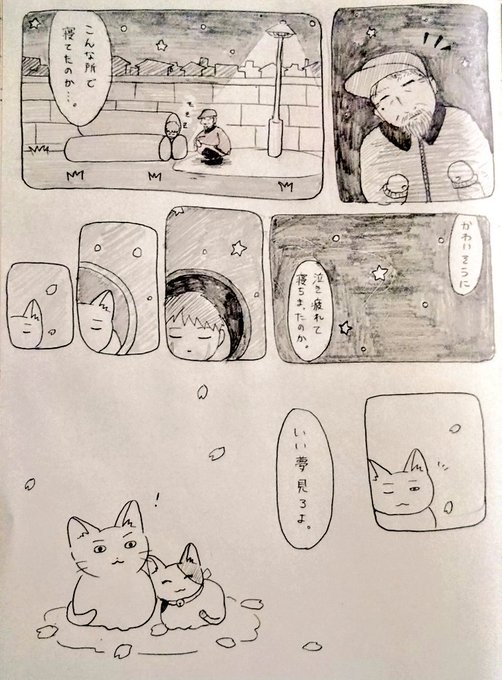 こんな所で
寝てたのか…。
かわいそうに
泣き疲れて
寝ちまったのか。
いい夢見ろよ。
!